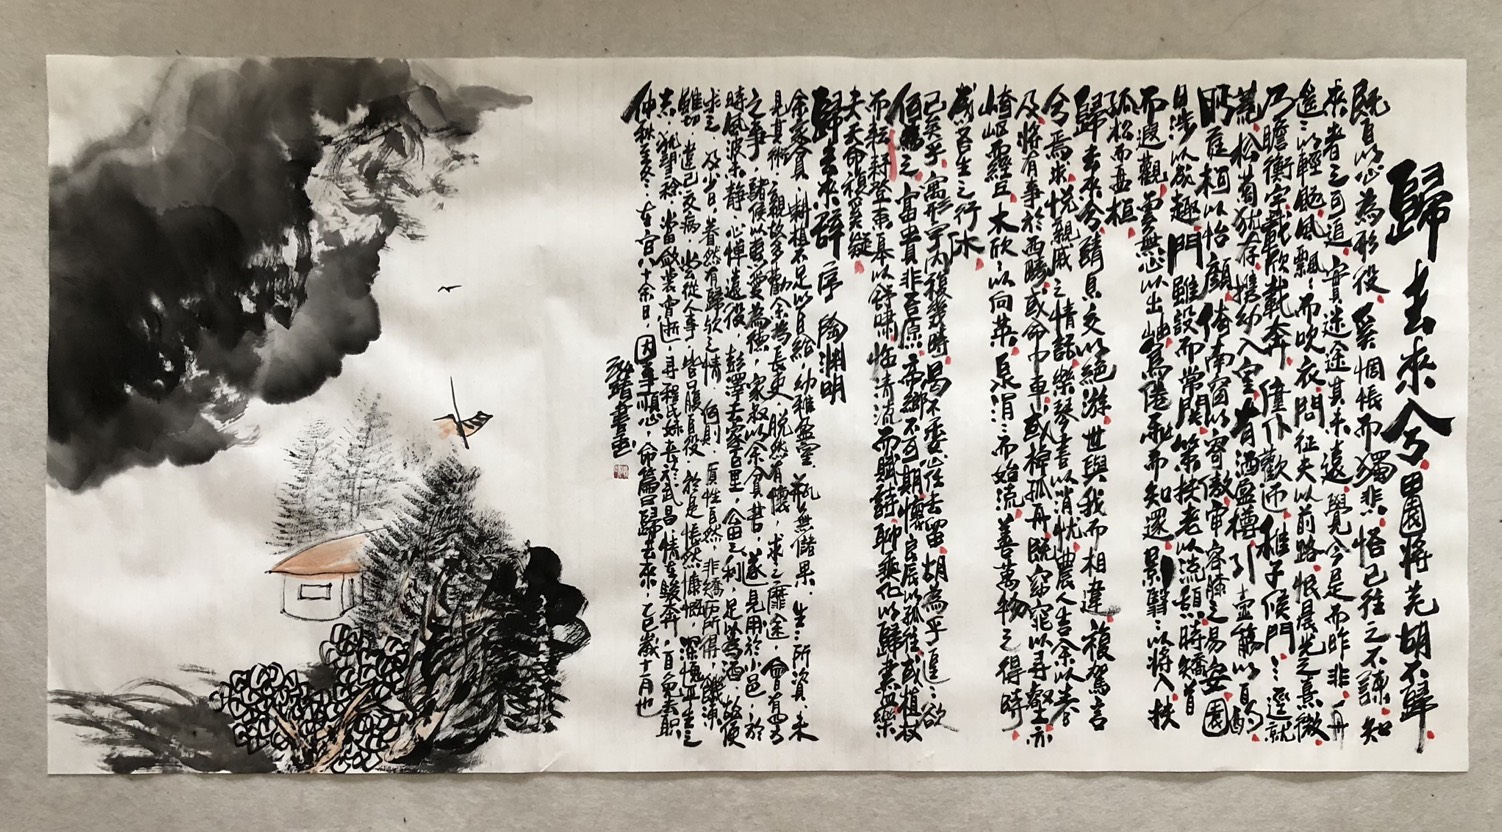 歸去來兮田園將芜胡不歸
既自以心為形役奚惆悵而獨悲悟已往之不諫知
來者之可追實迷途其未遠覺今是而昨非舟
遥遥以輕颺風飄飄而吹衣問征夫以前路恨晨光之熹微
乃瞻衡宇載欣載奔僮仆歡迎稚子候門三逕就
荒松菊猶存携幼入室有酒盈樽引壺觴以自酌
眄庭柯以怡顔倚南窗以寄傲審容膝之易安園
日涉以成趣門雖設而常関策扶老以流憩時矯首
而遐觀雲無心以出岫鳥倦飛而知還景翳翳以將入扶
孤松而盤桓
歸去來兮請息交以絶游世與我而相違複駕言
兮焉求悦親戚之情話樂琴書以消憂農人告余以春
及將有事於西疇或命巾車或棹孤舟既窈窕以尋壑亦
崎嶇而經丘木欣欣以向荣泉涓涓而始流善萬物之得時
感吾生之行休
已矣乎寓形宇内複幾時曷不委心任去留胡為乎遑遑欲
何之富貴非吾原帝鄉不可期懷良辰以孤往或植杖
而耘耔登東皋以舒嘯临清流而賦詩聊乘化以歸盡樂
夫天命複奚疑
歸去來辭序 陶渊明
余家貧，耕植不足以自給，幼稚盈室，瓶無儲粟，生生所資，未
見其術，親故多勸余為長吏，脱然有懷，求之靡途，會有四方
之事，諸侯以惠愛為德，家叔以余貧苦，遂見用於小邑，於
時風波未静，心憚遠役，彭澤去家百里，公田之利，足以為酒，故便
求之，及少日，眷然有歸欤之情，何則，質性自然，非矯厲所得，饑凍
雖切，違己交病，嘗從人事，皆口腹自役，於是悵然慷慨，深愧平生之
志，猶望一稔，當斂裳宵逝，尋程氏妹喪於武昌，情在駿奔，自免去職，
仲秋至冬，在官八十余日，因事順心，命篇曰歸去來，乙巳歲十一月也
書画